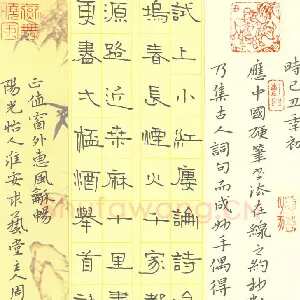 時己丑年初
應中國硬筆書法在線之約抄
乃集古人詞句而成妙手偶得
試上小紅樓論詩
塢春長煙火十家都
源路近桑麻十里
更盡弌榼酒舉首
正值窗外惠風龢暢
陽光怡人淮安求藝堂主周